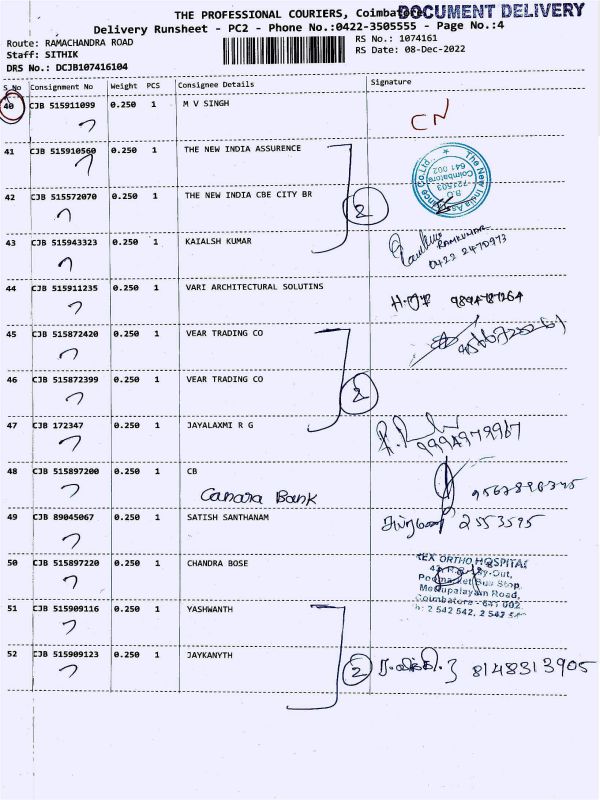 THE PROFESSIONAL COURIERS, Coimbatore
DOCUMENT DELIVERY
Delivery Runsheet - PC2 - Phone No.:0422-3505555 - Page No.:4
Route: RAMACHANDRA ROAD
RS No.: 1074161
Staff: SITHIK
RS Date: 08-Dec-2022
DRS No.: DCJB107416104
S No Consignment No Weight PCS Consignee Details Signature
40 CJB 515911099 0.250 1 M V SINGH
CN
41 CJB 515910560 0.250 1 THE NEW INDIA ASSURENCE
The New India Assurance Co.Ltd.
Coimbatore
641 002
42 CJB 515572070 0.250 1 THE NEW INDIA CBE CITY BR
2
43 CJB 515943323 0.250 1 KAIALSH KUMAR
RAMKUMAR
0422 2470973
44 CJB 515911235 0.250 1 VARI ARCHITECTURAL SOLUTINS
45 CJB 515872420 0.250 1 VEAR TRADING CO
46 CJB 515872399 0.250 1 VEAR TRADING CO
2
47 CJB 172347 0.250 1 JAYALAXMI R G
9994979967
48 CJB 515897200 0.250 1 CB
Canara Bank
49 CJB 89045067 0.250 1 SATISH SANTHANAM
2553595
50 CJB 515897220 0.250 1 CHANDRA BOSE
REX ORTHO HOSPITAL
Mettupalayam Road,
Coimbatore - 641 002.
Ph: 2 542 542, 2 542
51 CJB 515909116 0.250 1 YASHWANTH
52 CJB 515909123 0.250 1 JAYKANYTH
2
8148313905